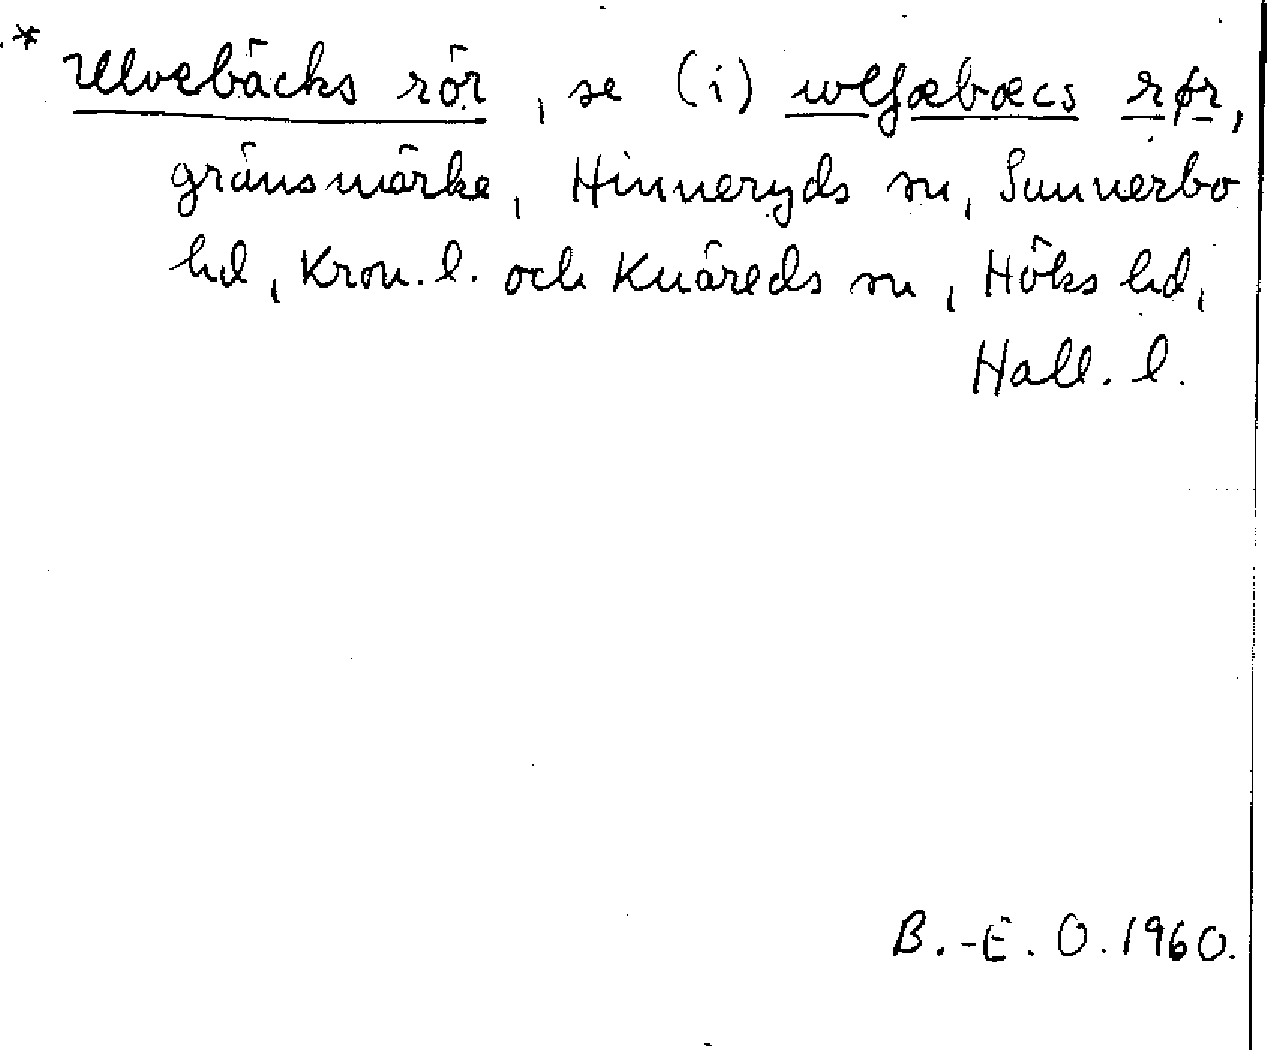 * Ulvebäcks rör, se (i) wlfæbæcs rør,
gränsmärke, Hinneryds sn, Sunnerbo
hd, Kron. l. och Knäreds sn, Höks hd,
Hall. l.
B.-E. O. 1960.